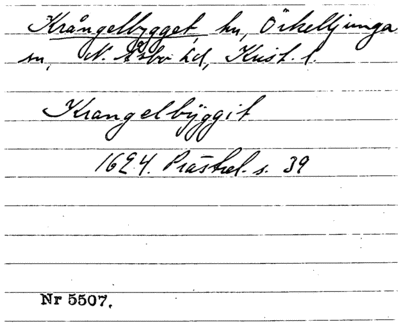 Krångelbygget, hu, Örkelljunga
sn, N. Åsbo hd, Krist. l.
Krangelbÿggit
1624. Prästrel. s. 39
Nr 5507.